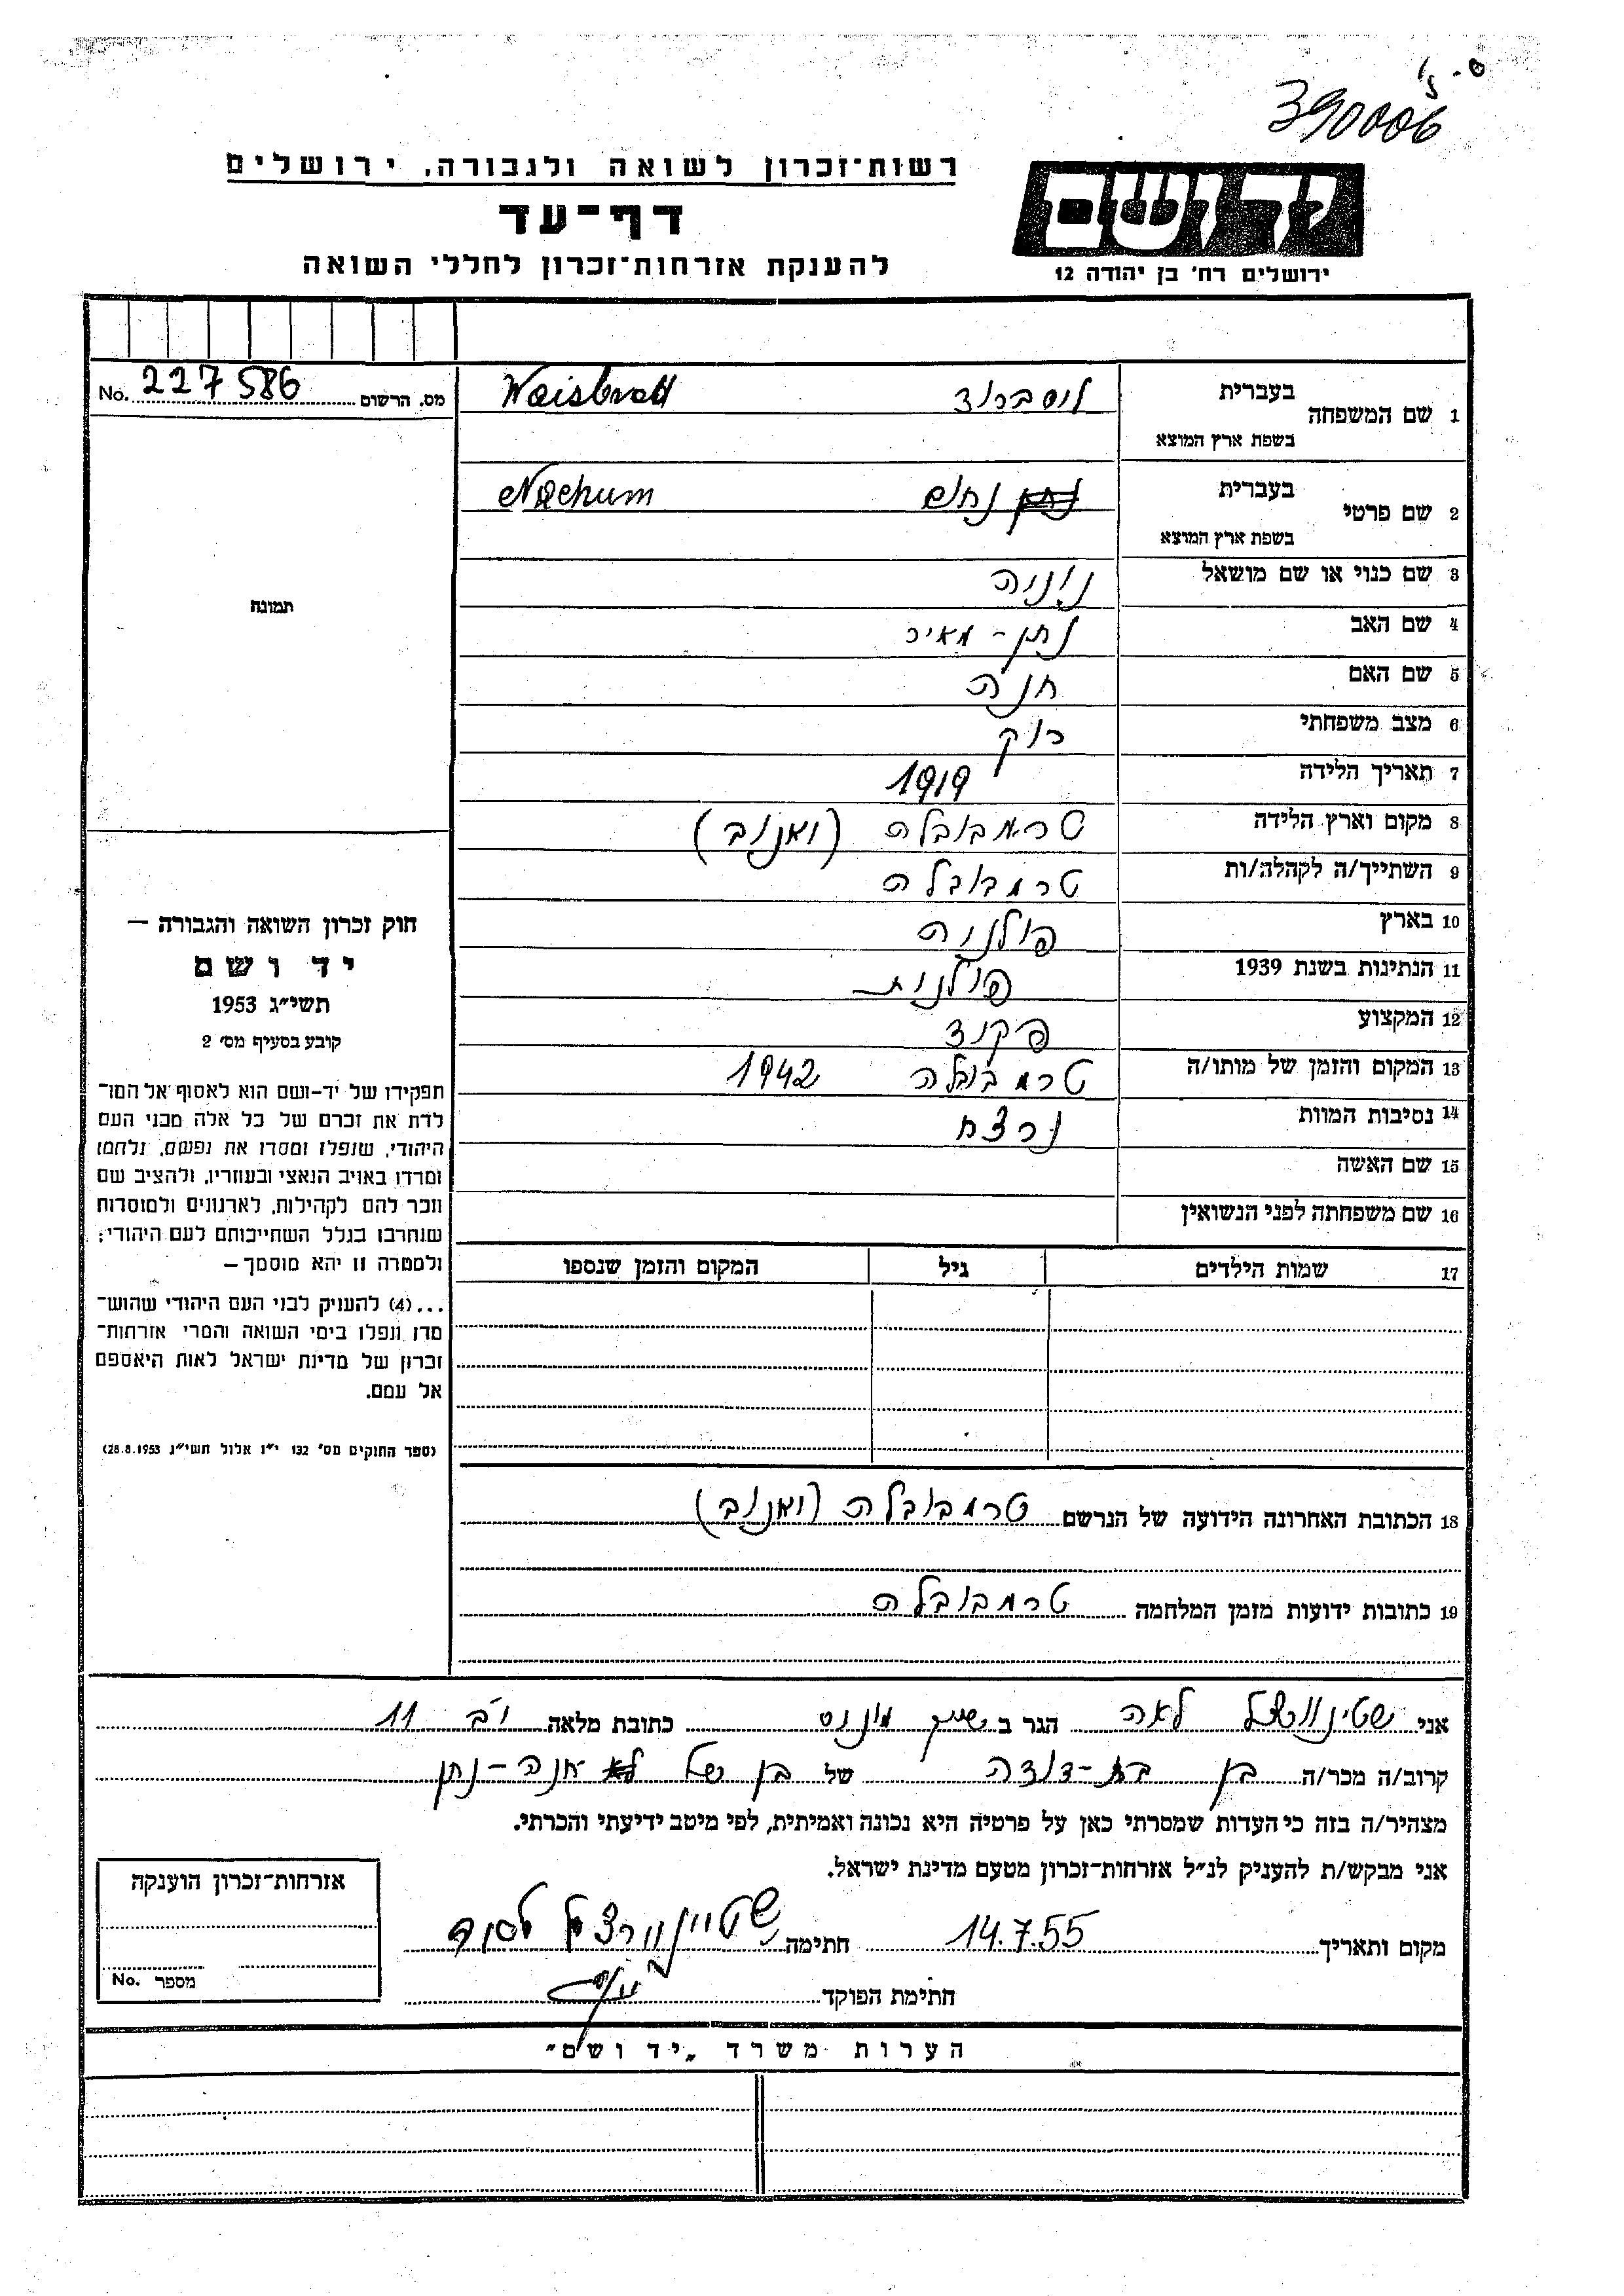 390006
רשות־זכרון לשואה ולגבורה, ירושלים
יד ושם
דף־עד
להענקת אזרחות־זכרון לחללי השואה
ירושלים רח' בן יהודה 12
מס. הרשום No. 227586
1 שם המשפחה בעברית ויסברוד Waisbrod
בשפת ארץ המוצא
2 שם פרטי בעברית נחום Nachum
בשפת ארץ המוצא
3 שם כנוי או שם מושאל נוניה
4 שם האב נתן - מאיר
5 שם האם חנה
6 מצב משפחתי רוק
7 תאריך הלידה 1919
8 מקום וארץ הלידה טרמבובלה (ואנוב)
9 השתייך/ה לקהלה/ות טרמבובלה
10 בארץ פולניה
11 הנתינות בשנת 1939 פולנית
12 המקצוע פקיד
13 המקום והזמן של מותו/ה טרמבובלה 1942
14 נסיבות המוות נרצח
15 שם האשה
16 שם משפחתה לפני הנשואין
17 שמות הילדים גיל המקום והזמן שנספו
תמונה
חוק זכרון השואה והגבורה —
יד ושם
תשי״ג 1953
קובע בסעיף מס׳ 2
תפקידו של יד-ושם הוא לאסוף אל המו־
לדת את זכרם של כל אלה מבני העם
היהודי, שנפלו ומסרו את נפשם, נלחמו
ומרדו באויב הנאצי ובעוזריו, ולהציב שם
וזכר להם לקהילות, לארגונים ולמוסדות
שנחרבו בגלל השתייכותם לעם היהודי;
ולמטרה זו יהא מוסמך —
...(4) להעניק לבני העם היהודי שהוש־
מדו ונפלו בימי השואה והמרי אזרחות־
זכרון של מדינת ישראל לאות היאספם
אל עמם.
(ספר החוקים מס׳ 132 י״ז אלול תשי״ג 28.8.1953)
18 הכתובת האחרונה הידועה של הנרשם טרמבובלה (ואנוב)
19 כתובות ידועות מזמן המלחמה טרמבובלה
אני לאה הגר ב שיך מוניס כתובת מלאה י׳ב 11
קרוב/ה מכר/ה בן בת-דודה של בן של חנה-נתן
מצהיר/ה בזה כי העדות שמסרתי כאן על פרטיה היא נכונה ואמיתית, לפי מיטב ידיעתי והכרתי.
אני מבקש/ת להעניק לנ״ל אזרחות-זכרון מטעם מדינת ישראל.
מקום ותאריך 14.7.55 חתימה
חתימת הפוקד
אזרחות-זכרון הוענקה
מספר No.
הערות משרד „יד ושם״